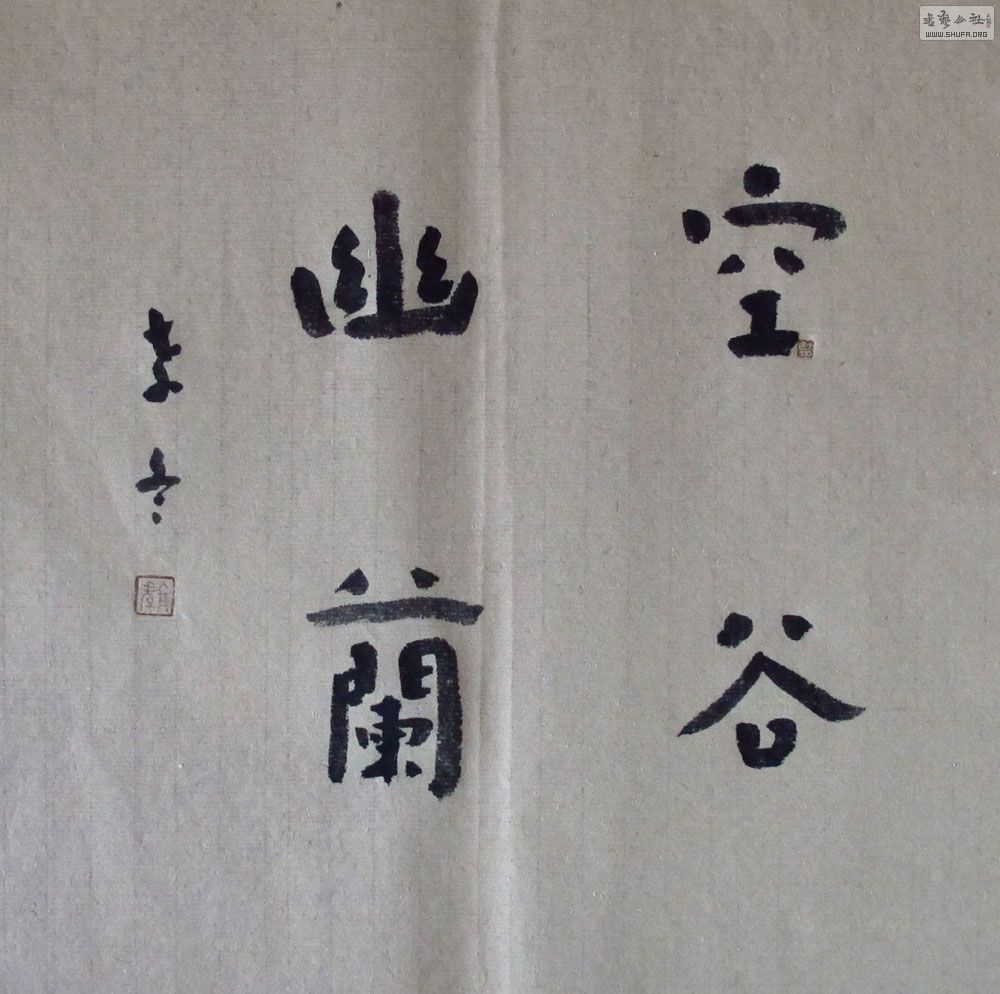 空谷
幽蘭
書藝公社
WWW.SHUFA.ORG